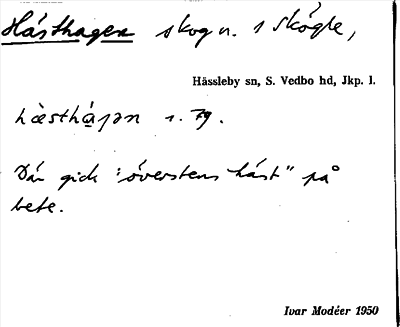 Hästhagen skog n. i Skögle,
Hässleby sn, S. Vedbo hd, Jkp. l.
hæ̀sthá̱ɡən s. 79.
Där gick "överstens häst" på
bete.
Ivar Modéer 1950